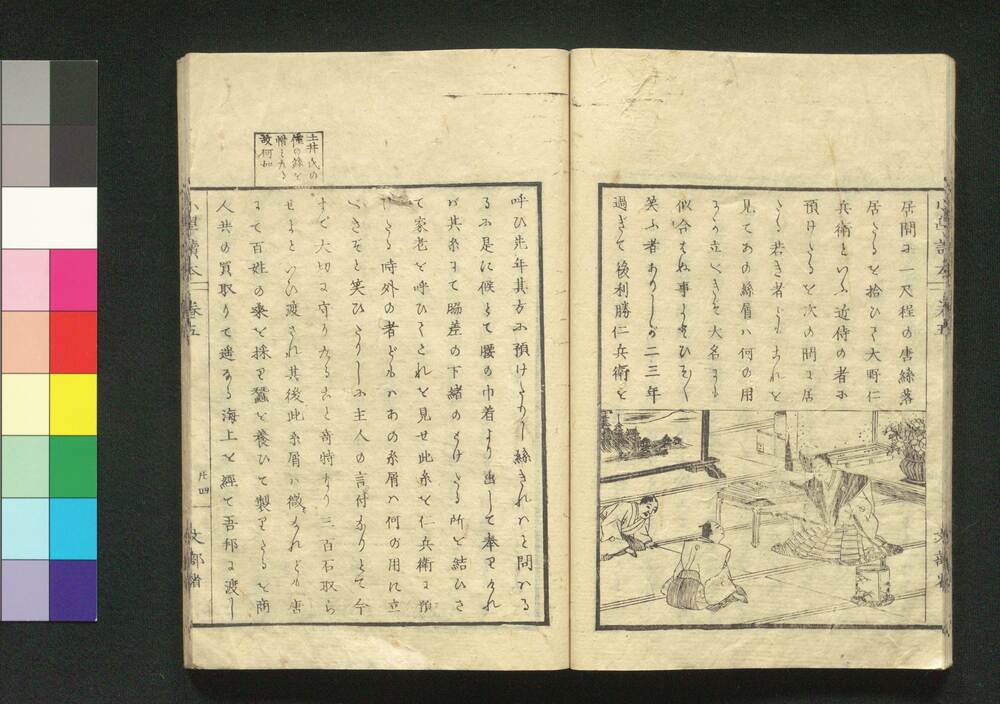 居間に一尺程の唐絲落
居たるを拾ひて大野仁
兵衛といふ近侍の者に
預けたるを次の間に居
たる若き者どもこれを
見てあの絲屑ハ何の用
にか立べきぞ大名にも
似合ハぬ事よとひそく
笑ふ者ありしが二三年
過ぎて後利勝仁兵衛を
呼ひ先年其方に預けたりし絲きれハと問ハる
るに是に候とて腰の巾着より出して奉りけれ
バ其糸にて脇差の下緒のとけたる所を結ひさ
て家老を呼ひてこれを見せ此糸を仁兵衛に預
けたる時外の者どもハあの糸屑ハ何の用に立
べきぞと笑ひたりしに主人の言付なりとて今
まで大切に守りたること奇特なり三百石取ら
せよといひ渡され其後此糸屑ハ微なれども唐
にて百姓の桑を採り蠶を養ひて製りたるを商
人共の買取りて遥なる海上を經て吾邦に渡し
土井氏の
僅の絲を
惜ミたる
故何如
小學讀本
卷五
廿四
文部省